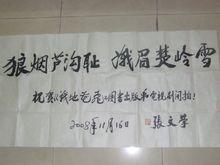 狼烟芦沟耻 峨眉楚岭雪
祝贺《战地范花》图书出版暨电视剧开拍！
2008年11月16日
张文学